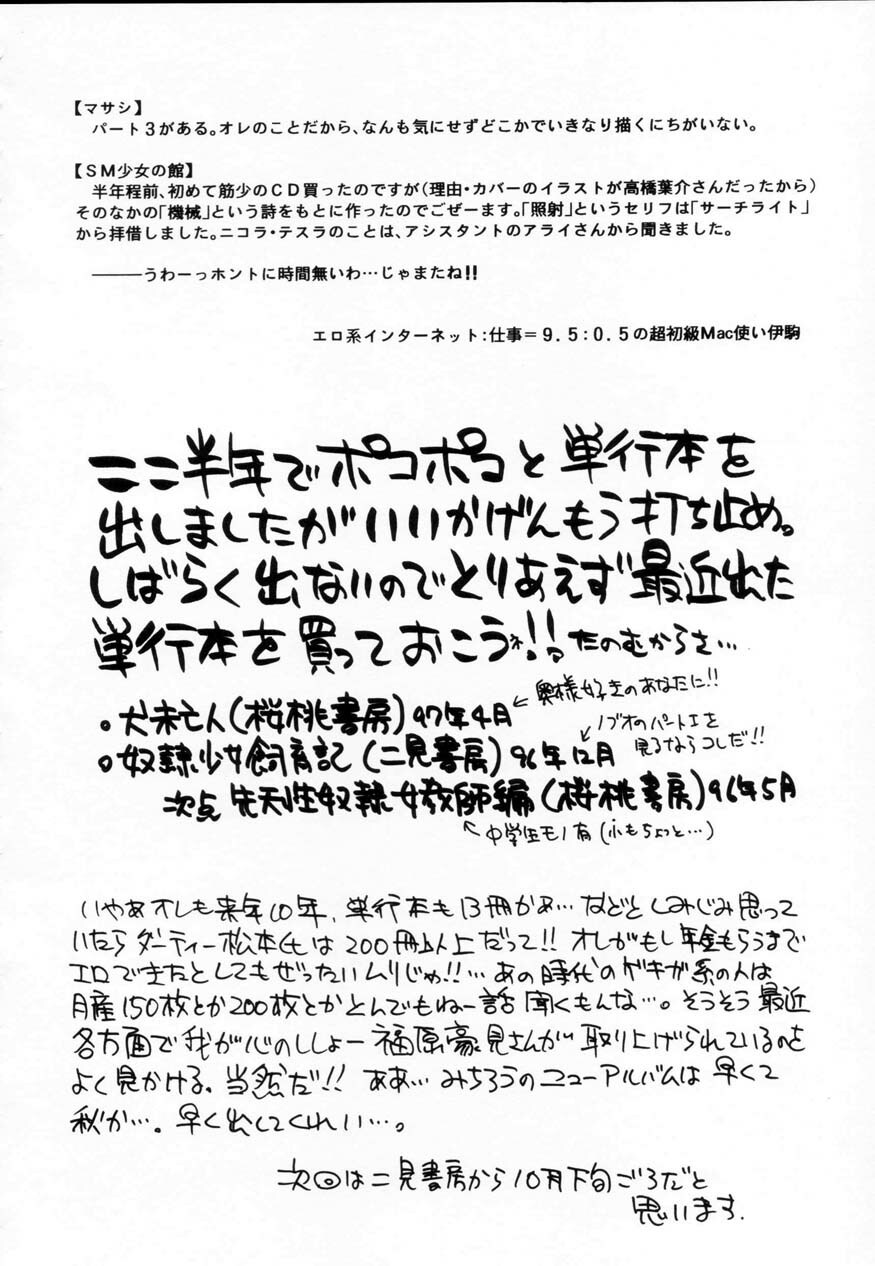 【マサシ】
パート3がある。オレのことだから、なんも気にせずどこかでいきなり描くにちがいない。
【SM少女の館】
半年程前、初めて筋少のCD買ったのですが(理由・カバーのイラストが高橋葉介さんだったから)
そのなかの「機械」という詩をもとに作ったのでごぜーます。「照射」というセリフは「サーチライト」
から拝借しました。ニコラ・テスラのことは、アシスタントのアライさんから聞きました。
———うわーっホントに時間無いわ…じゃまたね!!
エロ系インターネット:仕事=9.5:0.5の超初級Mac使い伊駒
ここ半年でポコポコと単行本を
出しましたがいいかげんもう打ち止め。
しばらく出ないのでとりあえず最近出た
単行本を買っておこうネ!!ったのむからさ…
。犬未亡人(桜桃書房)97年4月←奥様好きのあなたに!!
。奴隷少女飼育記(二見書房)96年12月←ノブオのパート1を
見るならコレだ!!
次点 先天性奴隷女教師編(桜桃書房)96年5月
←中学生モノ有(小もちょっと…)
いやあオレも来年10年、単行本も13冊かぁ…などとしみじみ思って
いたらダーティー松本氏は200冊以上だって!!オレがもし年金もらうまで
エロで生きたとしてもぜったいムリじゃ!!…あの時代のゲキガ系の人は
月産150枚とか200枚とかとんでもねー話聞くもんな…。そうそう最近
各方面で我が心のししょー福原豪見さんが取り上げられているのを
よく見かける。当然だ!!ああ…みちろうのニューアルバムは早くて
秋か…。早く出してくれい…。
次回は二見書房から10月下旬ごろだと
思います.